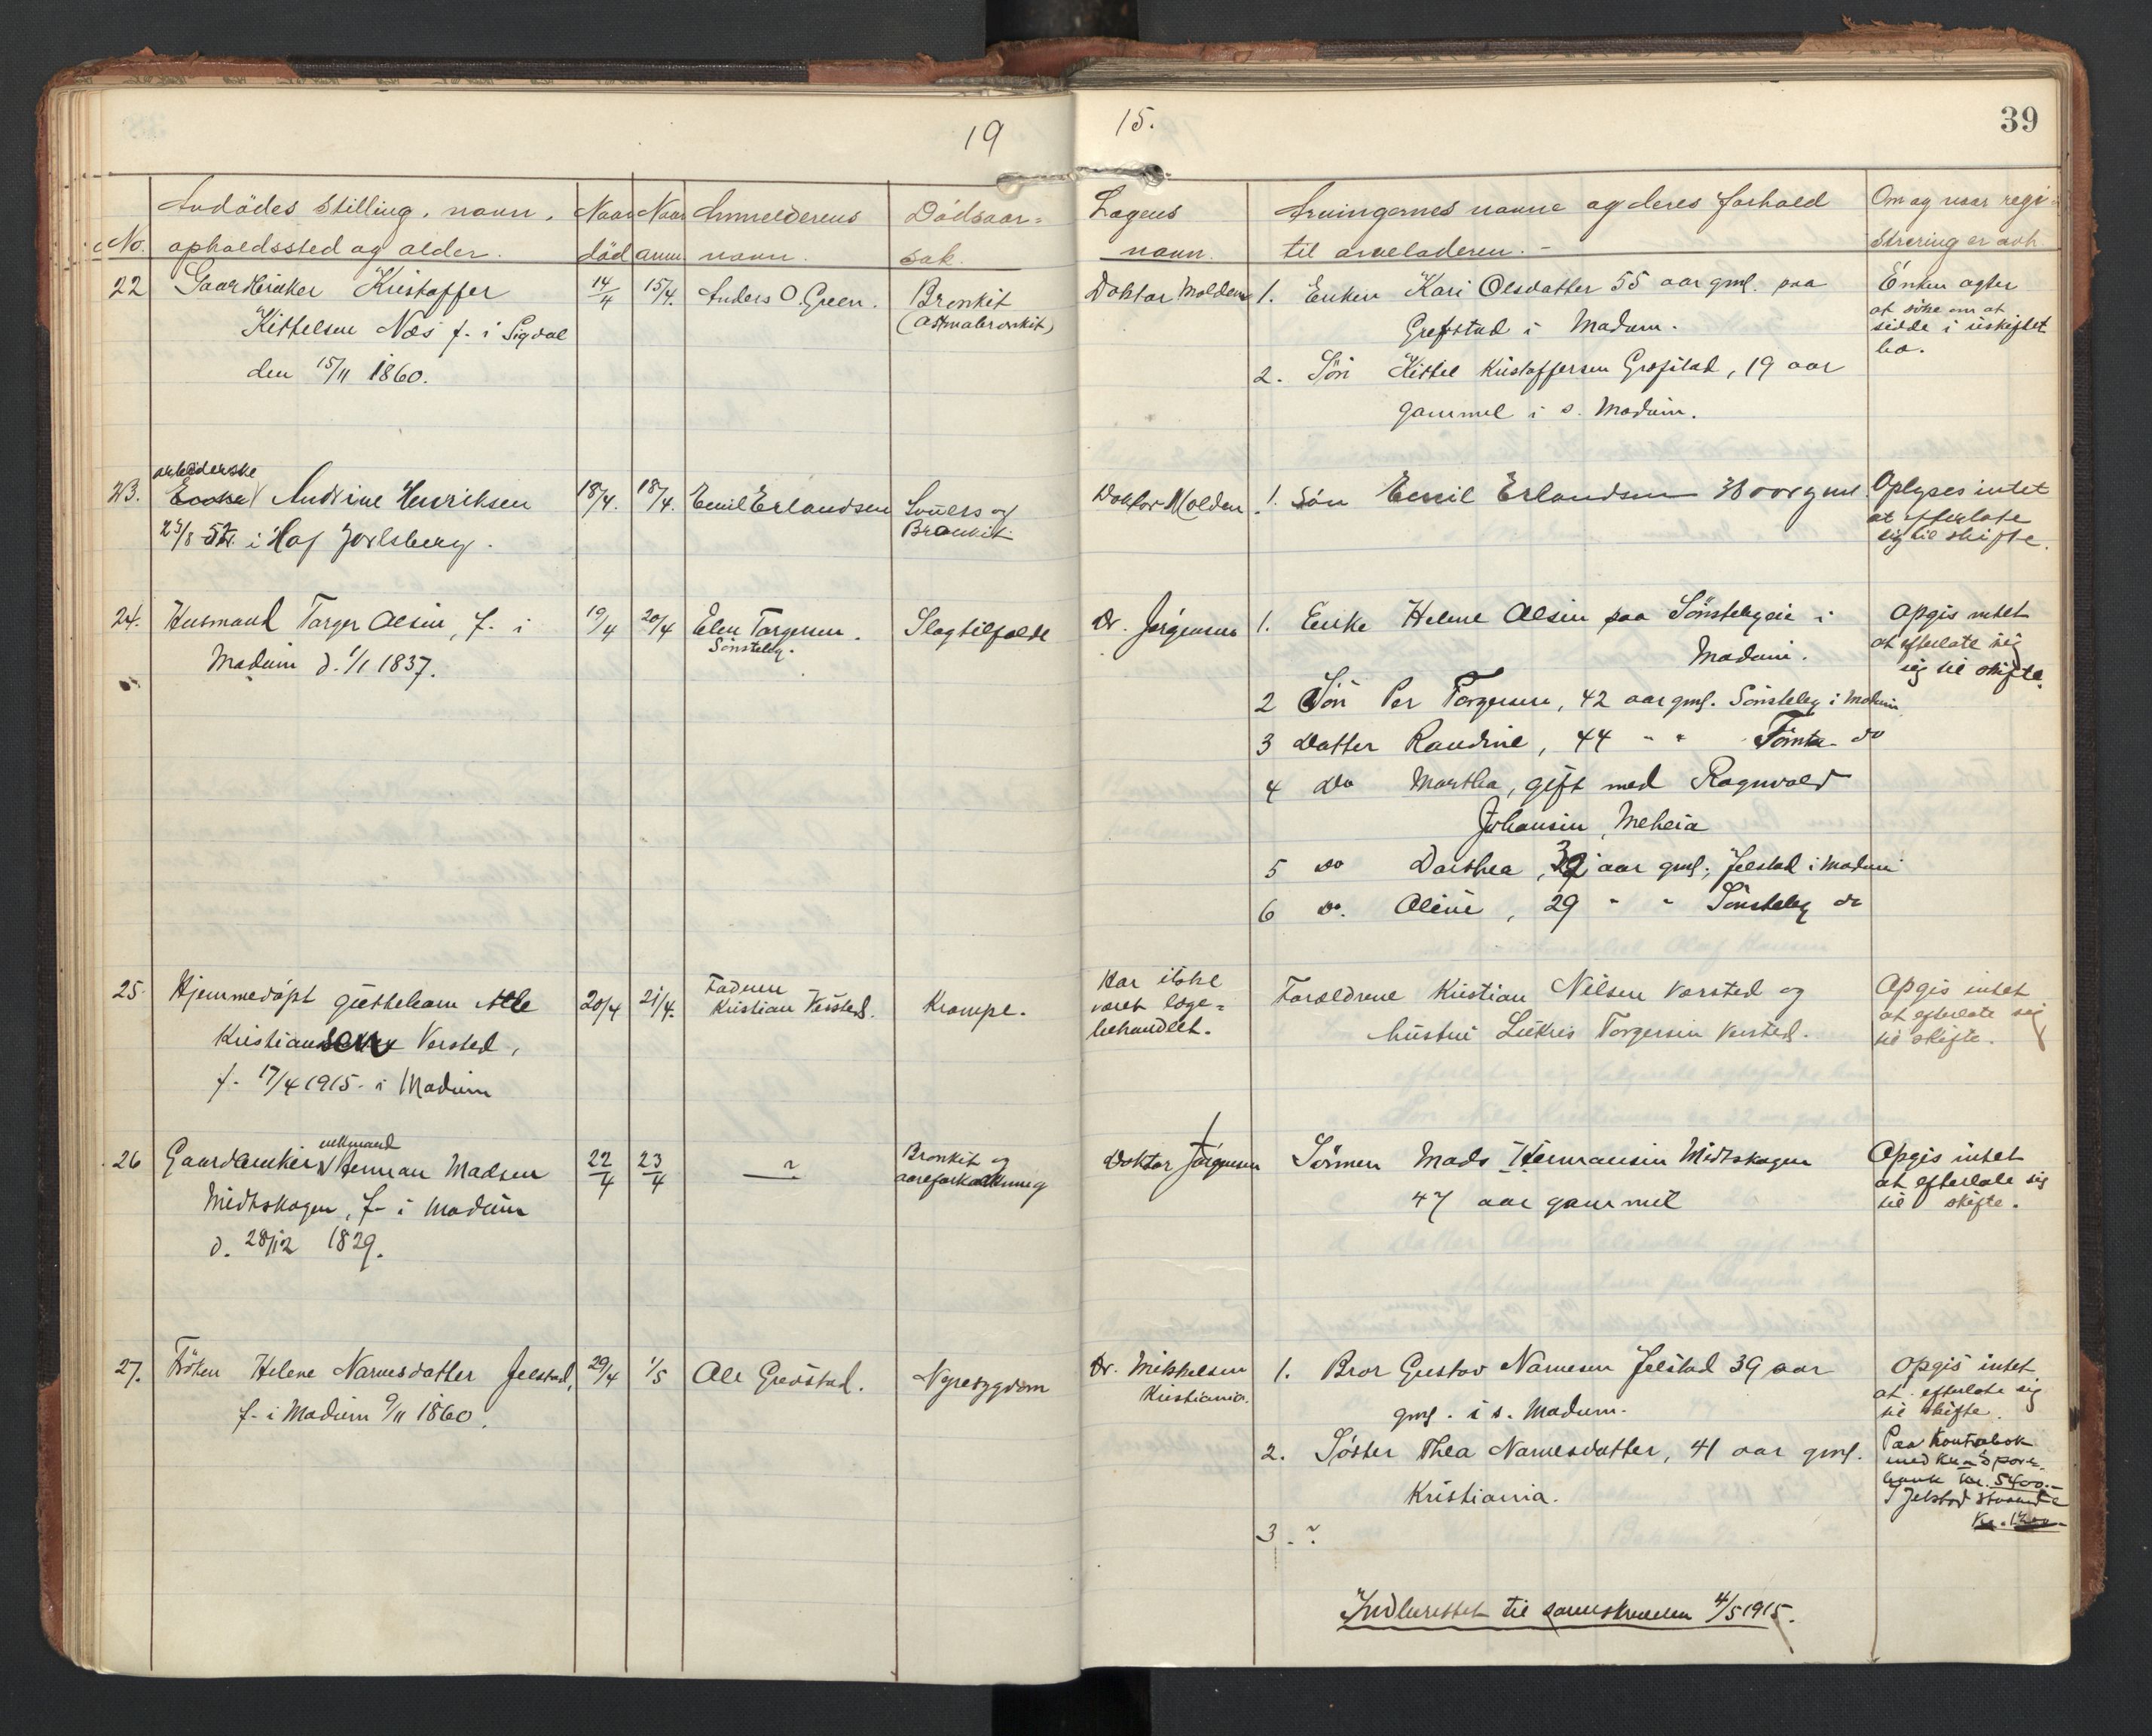 19 15. 39
No. Avdödes stilling, navn, opholdssted og alder.
Naar död
Naar anm.
Anmelderens navn.
Dödsaarsak.
Lægens navn.
Arvingernes navne og deres forhold til arveladeren. -
Om og naar registrering er avh.
22 Gaardbruker Kristoffer
Kittelsen Næs f. i Sigdal
den 15/11 1860.
14/4
15/4.
Anders O. Green.
Bronkit
(Astmabronkit)
Doktor Molden
1. Enken Kari Olsdatter 55 aar gml. paa
Grefstad i Modum.
2. Sön Kittel Kristoffersen Grefstad, 19 aar
gammel i s. Modum.
Enken agter
at söke om at
sidde i uskiftet
bo.
23. arbeiderske
Andrine Henriksen
23/8 52. i Hof Jarlsberg.
18/4.
18/4.
Emil Erlandsen
Bronkit.
Doktor Molden
1. Sön Emil Erlandsen 38 aar gml.
Oplyses intet
at efterlate
sig til skifte.
24. Husmand Torger Olsen, f. i
Modum d. 1/1 1837.
19/4
20/4
Elen Torgersen.
Sönsteby.
Slagtilfælde
Dr. Jörgensen
1. Enke Helene Olsen paa Sönstebyeie i
Modum.
2 Sön Per Torgersen, 42 aar gml. Sönsteby i Modum
3 Datter Randine, 44 " " Tomta do
4 Do Martha, gift med Ragnvald
Johansen, Meheia
5 Do Dorthea, 32 aar gml., Jelstad i Modum
6 Do. Oline, 29 " " Sönsteby do
Opgis intet
at efterlate sig
sig til skifte.
25. Hjemmedöpt guttebarn Atle
Kristiansen Versted,
f. 17/4 1915 i Modum
20/4
21/4.
Faderen
Kristian Versted.
Krampe.
Har ikke
været læge-
behandlet.
Forældrene Kristian Nilsen Versted og
hustru Lukris Torgersen Versted.
Opgis intet
at efterlate sig
til skifte.
26 Gaardbruker enkemand Herman Madsen
Midtskogen, f. i Modum
d. 28/12 1829.
22/4
23/4
- ? -
Bronkit og
aareforkalkning
Doktor Jörgensen
Sönnen Mads Hermansen Midtskogen
47 aar gammel
Opgis intet
at efterlate sig
til skifte.
27. Fröken Helene Narvesdatter Jelstad,
f. i Modum 9/11 1860.
29/4
1/5
Ole Grevstad.
Nyresygdom
Dr. Mikkelsen
Kristiania.
1. Bror Gustav Narvesen Jelstad 39 aar
gml. i s. Modum.
2. Söster Thea Narvesdatter, 41 aar gml.
Kristiania.
3. ?
Opgis intet
at efterlate sig
til skifte.
Paa Kontrabok
med Kr.a Spare-
bank kr. 5400.-
I Jelstad
Kr. 1200.-
Indberettet til sorenskriveren 4/5 1915.